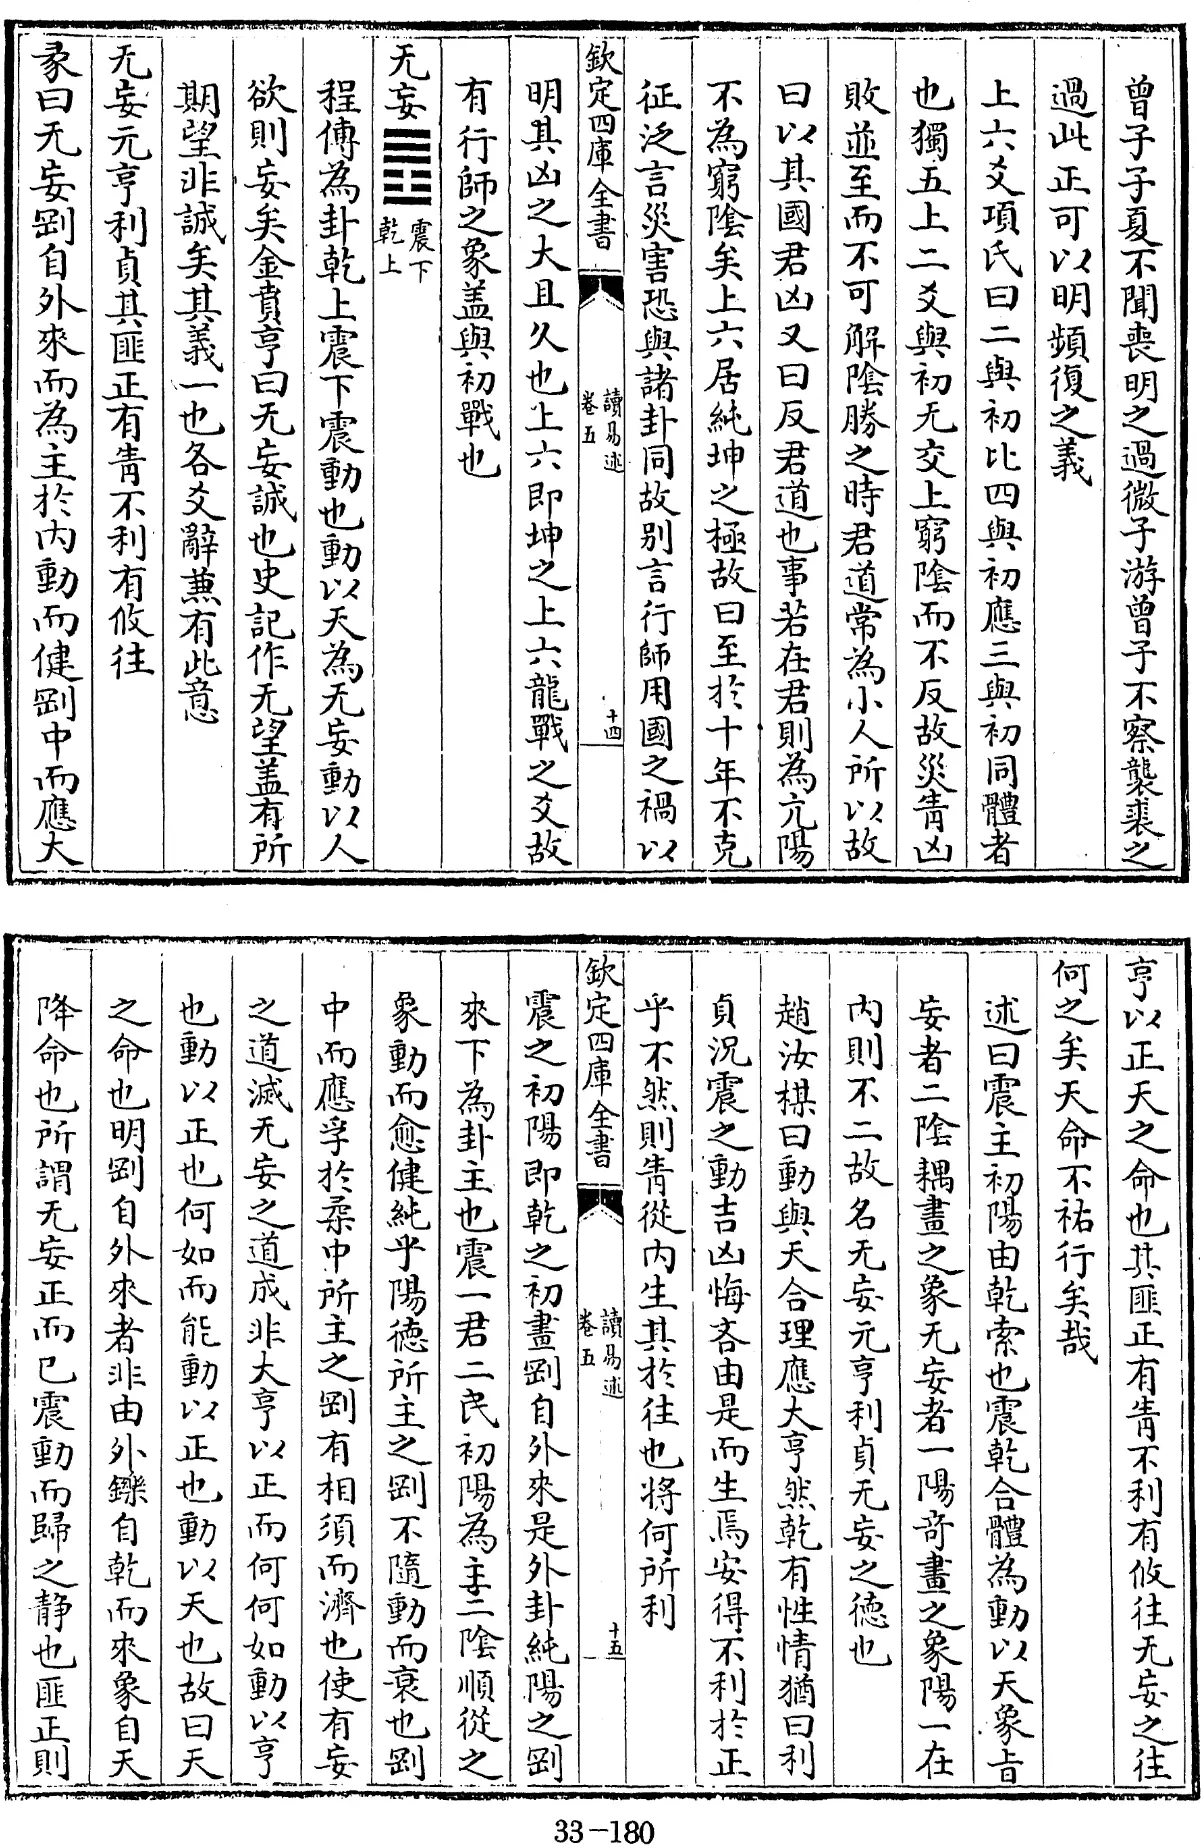 曾子子夏不聞喪明之過微子游曾子不察襲裘之
過此正可以明頻復之義
上六爻項氏曰二與初比四與初應三與初同體者
也獨五上二爻與初无交上窮陰而不反故災眚凶
敗並至而不可解陰勝之時君道常為小人所以故
曰以其國君凶又曰反君道也事若在君則為亢陽
不為窮陰矣上六居純坤之極故曰至於十年不克
征泛言災害恐與諸卦同故别言行師用國之禍以
欽定四庫全書
讀易述
卷五
十四
明其凶之大且久也上六即坤之上六龍戰之爻故
有行師之象盖與初戰也
无妄䷘震下
乾上
程傳為卦乾上震下震動也動以天為无妄動以人
欲則妄矣金賁亨曰无妄誠也史記作无望盖有所
期望非誠矣其義一也各爻辭兼有此意
无妄元亨利貞其匪正有眚不利有攸往
彖曰无妄剛自外來而為主於内動而健剛中而應大
亨以正天之命也其匪正有眚不利有攸往无妄之往
何之矣天命不祐行矣哉
述曰震主初陽由乾索也震乾合體為動以天象旨
妄者二陰耦畫之象无妄者一陽竒畫之象陽一在
内則不二故名无妄元亨利貞无妄之德也
趙汝楳曰動與天合理應大亨然乾有性情猶曰利
貞況震之動吉凶悔吝由是而生焉安得不利於正
乎不然則眚從内生其於往也將何所利
欽定四庫全書
讀易述
卷五
十五
震之初陽即乾之初畫剛自外來是外卦純陽之剛
來下為卦主也震一君二民初陽為主二陰順從之
象動而愈健純乎陽德所主之剛不隨動而衰也剛
中而應孚於柔中所主之剛有相須而濟也使有妄
之道滅无妄之道成非大亨以正而何何如動以亨
也動以正也何如而能動以正也動以天也故曰天
之命也明剛自外來者非由外鑠自乾而來象自天
降命也所謂无妄正而已震動而歸之静也匪正則
33-180